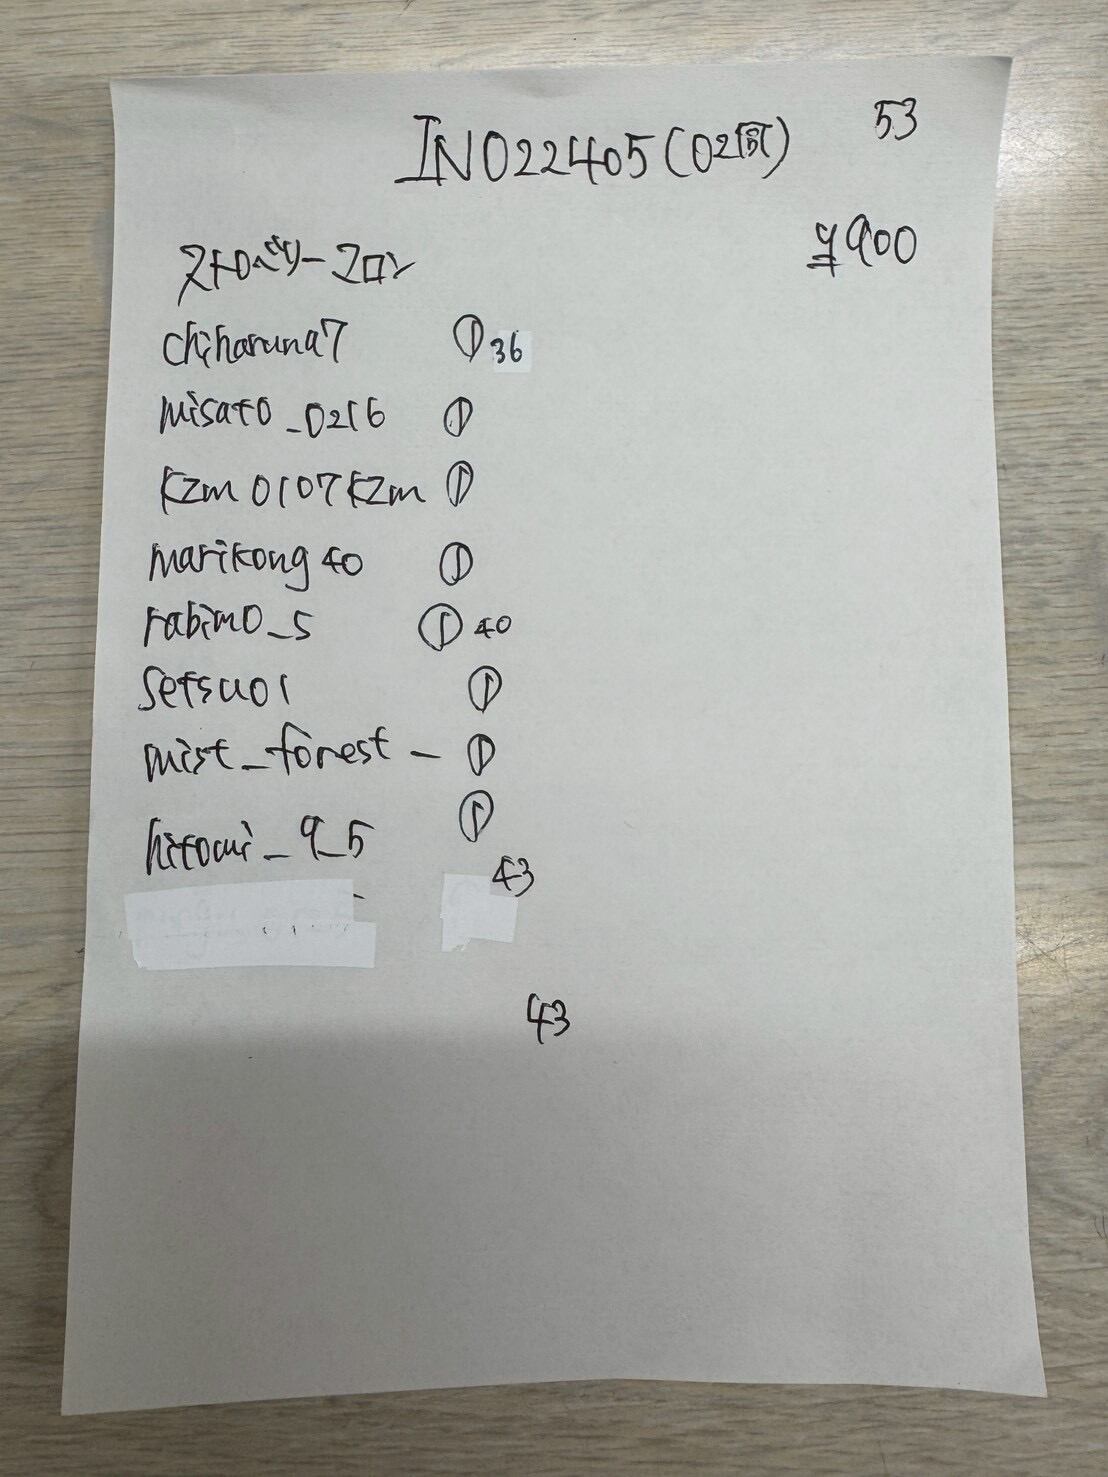 53
INO22405(02店)
¥900
ストロベリーフロン
chiharuna7 ① 36
misato_0216 ①
kzm0107kzm ①
marikong40 ①
rabimo_5 ① 40
setsu01 ①
mist_forest_ ①
hitomi_9_5 ①
43
43